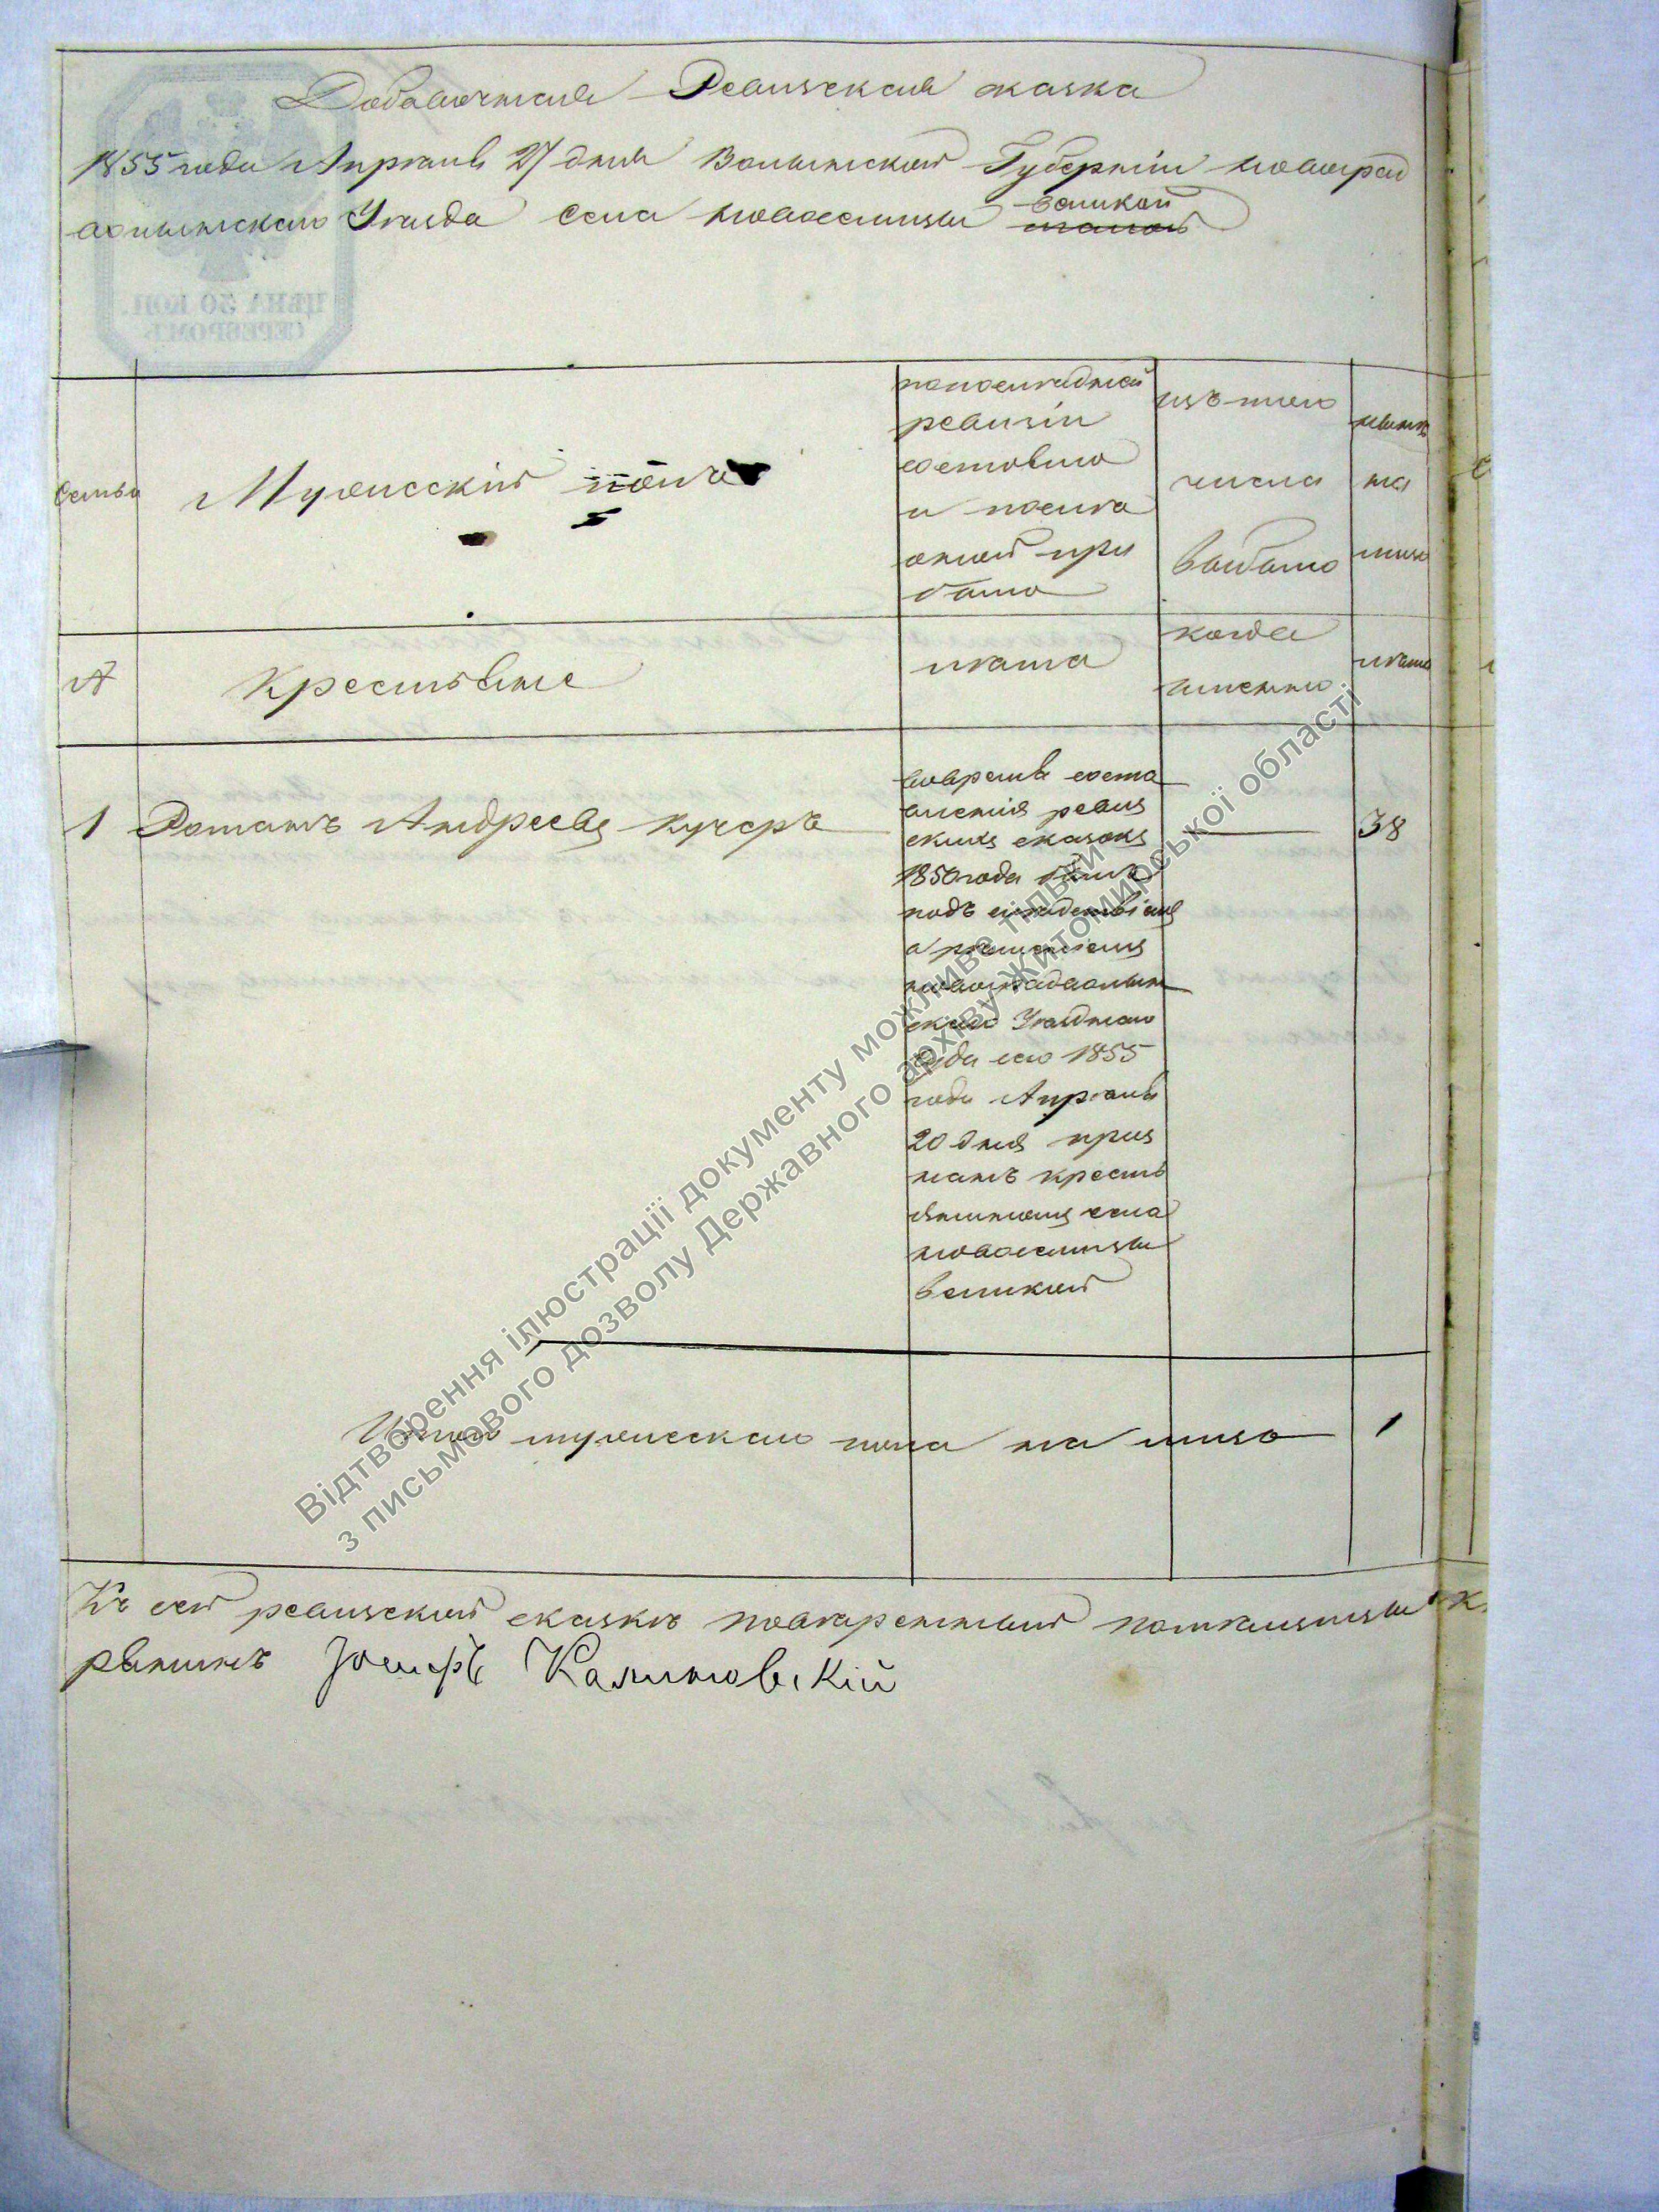 Добавочная Ревизская сказка
1855 года Апреля 27 дня Волынской Губерніи Новоград
волынского Уезда Села Новоселицы великой
ЦѢНА 30 КОП.
СЕРЕБРОМЪ
Семьи
Мужескій полъ
по последней
ревизіи
состояло
и после
оной при
было
изъ того
числа
выбыло
ныне
на
лицо
№
Крестьяне
лета
когда
именно
лета
1 Романъ Андреевъ Кучеръ
38
вовремя соста
вленія ревиз
скихъ сказокъ
1850 года былъ
подъ следствіемъ
а решеніемъ
новоградволын
скаго Уезднаго
Суда сего 1855
года Апреля
20 дня приз
нанъ кресть
яниномъ села
новоселицы
великой
Итого мужеска пола на лицо 1
Къ сей ревизской сказке поверенный помещицы
Іосифъ Калиновскій
Відтворення ілюстрації документу можливе тільки
з письмового дозволу Державного архіву Житомирської області